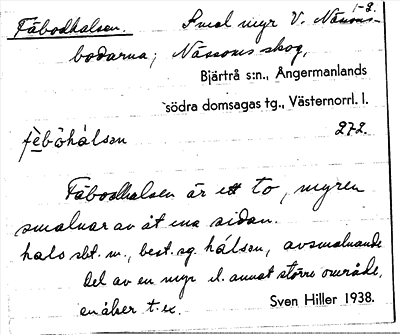 1-8.
Fäbodhalsen. Smal myr V. Nässoms-
bodarna; Nässoms skog,
Bjärtrå s:n., Ångermanlands
södra domsagas tg., Västernorrl. l.
fèbŏhálsən 272.
Fäbodhalsen är ett to, myren
smalnar av åt ena sidan.
hals sbt. m., best. sg. hálsən, avsmalnande
del av en myr el. annat större område,
en åker t. ex. Sven Hiller 1938.